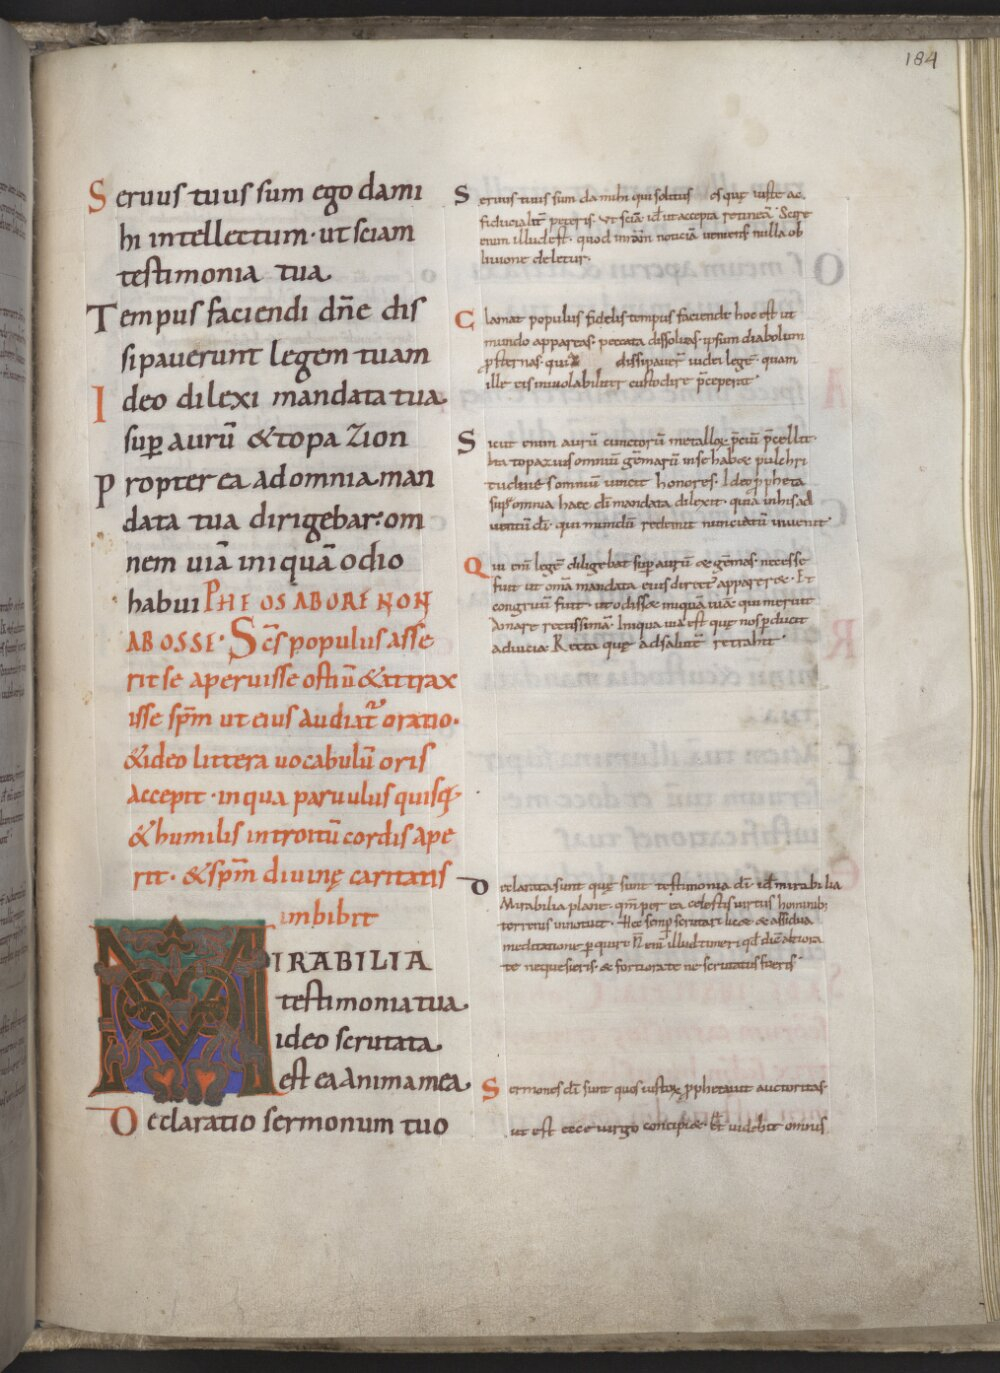 184
Seruus tuus sum ego da mi
hi intellectum · ut sciam
testimonia tua
Tempus faciendi dn̄e dis
sipauerunt legem tuam
Ideo dilexi mandata tua
sup̱ aurū & topazion
Propterea ad omnia man
data tua dirigebar: om
nem uiā iniquā odio
habui PHE OS AB ORE NON
AB OSSE · Sc̄s populus asse
rit se aperuisse ostiū & attrax
isse sp̄m ut eius audiat̄ oratio ·
& ideo littera uocabulū oris
accepit · in qua paruulus quisq;
& humilis introitū cordis ape
rit · & sp̄m diuinę caritatis
imbibit
MIRABILIA
testimonia tua
ideo scrutata
est ea anima mea
Declaratio sermonum tuo
Seruus tuus sum da mihi qui solitus es quę iuste ac
fiducialit̄ peteris. Vt sciā id ut accepta retineā. Scire
enim illud est · quod in noticiā ueniens nulla ob
liuione deletur ·
Clamat populus fidelis tempus faciendi hoc est ut
mundo appareas · peccata dissoluas · ipsum diabolum
p̱sternas · quia dissipauer̄ iudei legē · quam
ille eis inuiolabiliter custodire p̄ceperat
Sicut enim aurū cunctorū metalloꝝ p̄ciū p̄cellit ·
ita topazius omniū gēmarū in se habet pulchri
tudines omniū uincit honores · Ideo p̱pheta
sup̱ omnia haec dī mandata dilexit · quia in his ad
uentū dī · qui mundū redemit nunciatū
Qui enī legē diligebat sup̱ aurū & gēmas · necesse
fuit ut om̄ia mandata eius direct᷒ appareret · Et
congruū fuit · ut odisset iniquā uiā qui meruit
Amare rectissimā. Iniqua uia est quę nos p̱ducit
ad uicia Recta quę ad salutē retrahit ·
Declarata sunt quę sunt testimonia dī · id mirabilia
Mirabilia plane · qm̄ per ea celestis uirtus hominib;
terrenis innotuit · Hęc semp̱ scrutari licet & assidua
meditatione p̱quire N̄ enī illud timeri qd̄
te nequesieris · & fortiora te ne scrutatus fueris
Sermones dī sunt quos iustoꝝ p̱phetauit auctoritas ·
ut est ecce uirgo concipiet · Et uidebit omnis